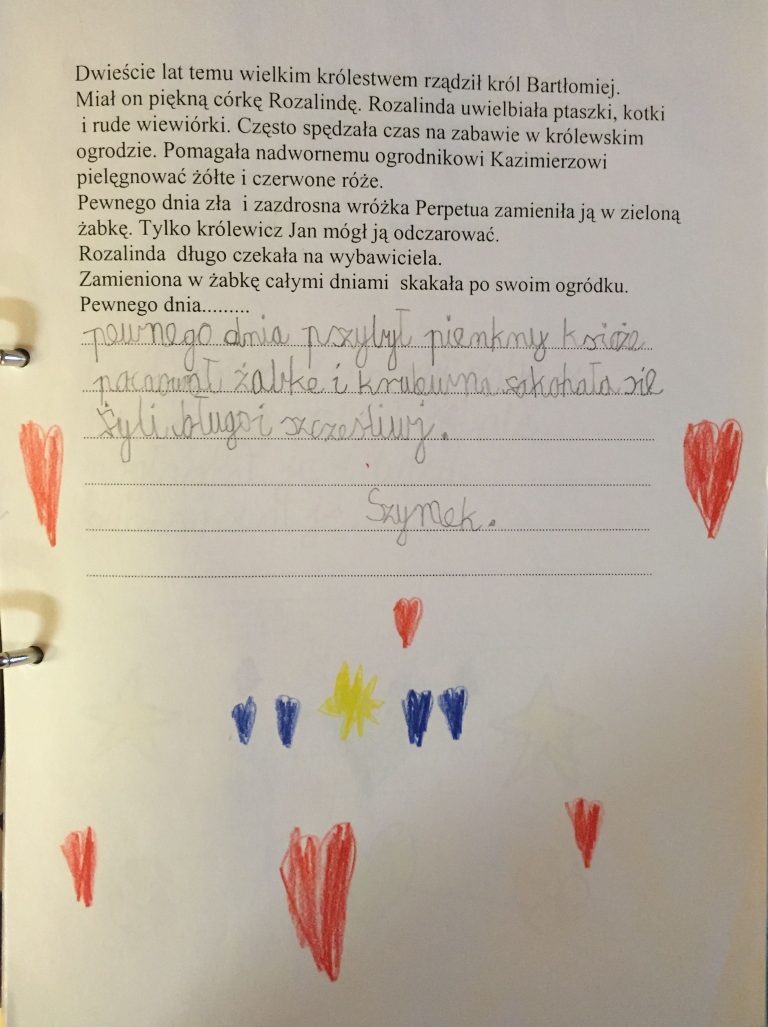 Dwieście lat temu wielkim królestwem rządził król Bartłomiej.
Miał on piękną córkę Rozalindę. Rozalinda uwielbiała ptaszki, kotki
i rude wiewiórki. Często spędzała czas na zabawie w królewskim
ogrodzie. Pomagała nadwornemu ogrodnikowi Kazimierzowi
pielęgnować żółte i czerwone róże.
Pewnego dnia zła i zazdrosna wróżka Perpetua zamieniła ją w zieloną
żabkę. Tylko królewicz Jan mógł ją odczarować.
Rozalinda długo czekała na wybawiciela.
Zamieniona w żabkę całymi dniami skakała po swoim ogródku.
Pewnego dnia.........
pewnego dnia pszybył pienkny ksioże
żabke i krulewna zakohała sie
żyli długo i szczesliwj.
Szymek.